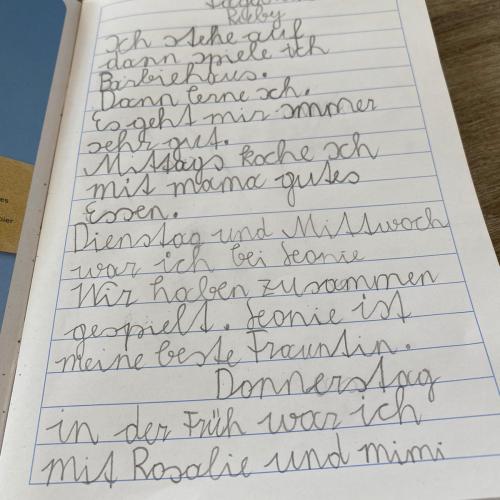 Ruby
Ich stehe auf
dann spiele ich
Barbiehaus.
Dann lerne ich.
Es geht mir immer
sehr gut.
Mittags koche ich
mit mama gutes
Essen.
Dienstag und Mittwoch
war ich bei Leonie
Wir haben zusammen
gespielt. Leonie ist
meine beste Frauntin.
Donnerstag
in der Früh war ich
mit Rosalie und mimi